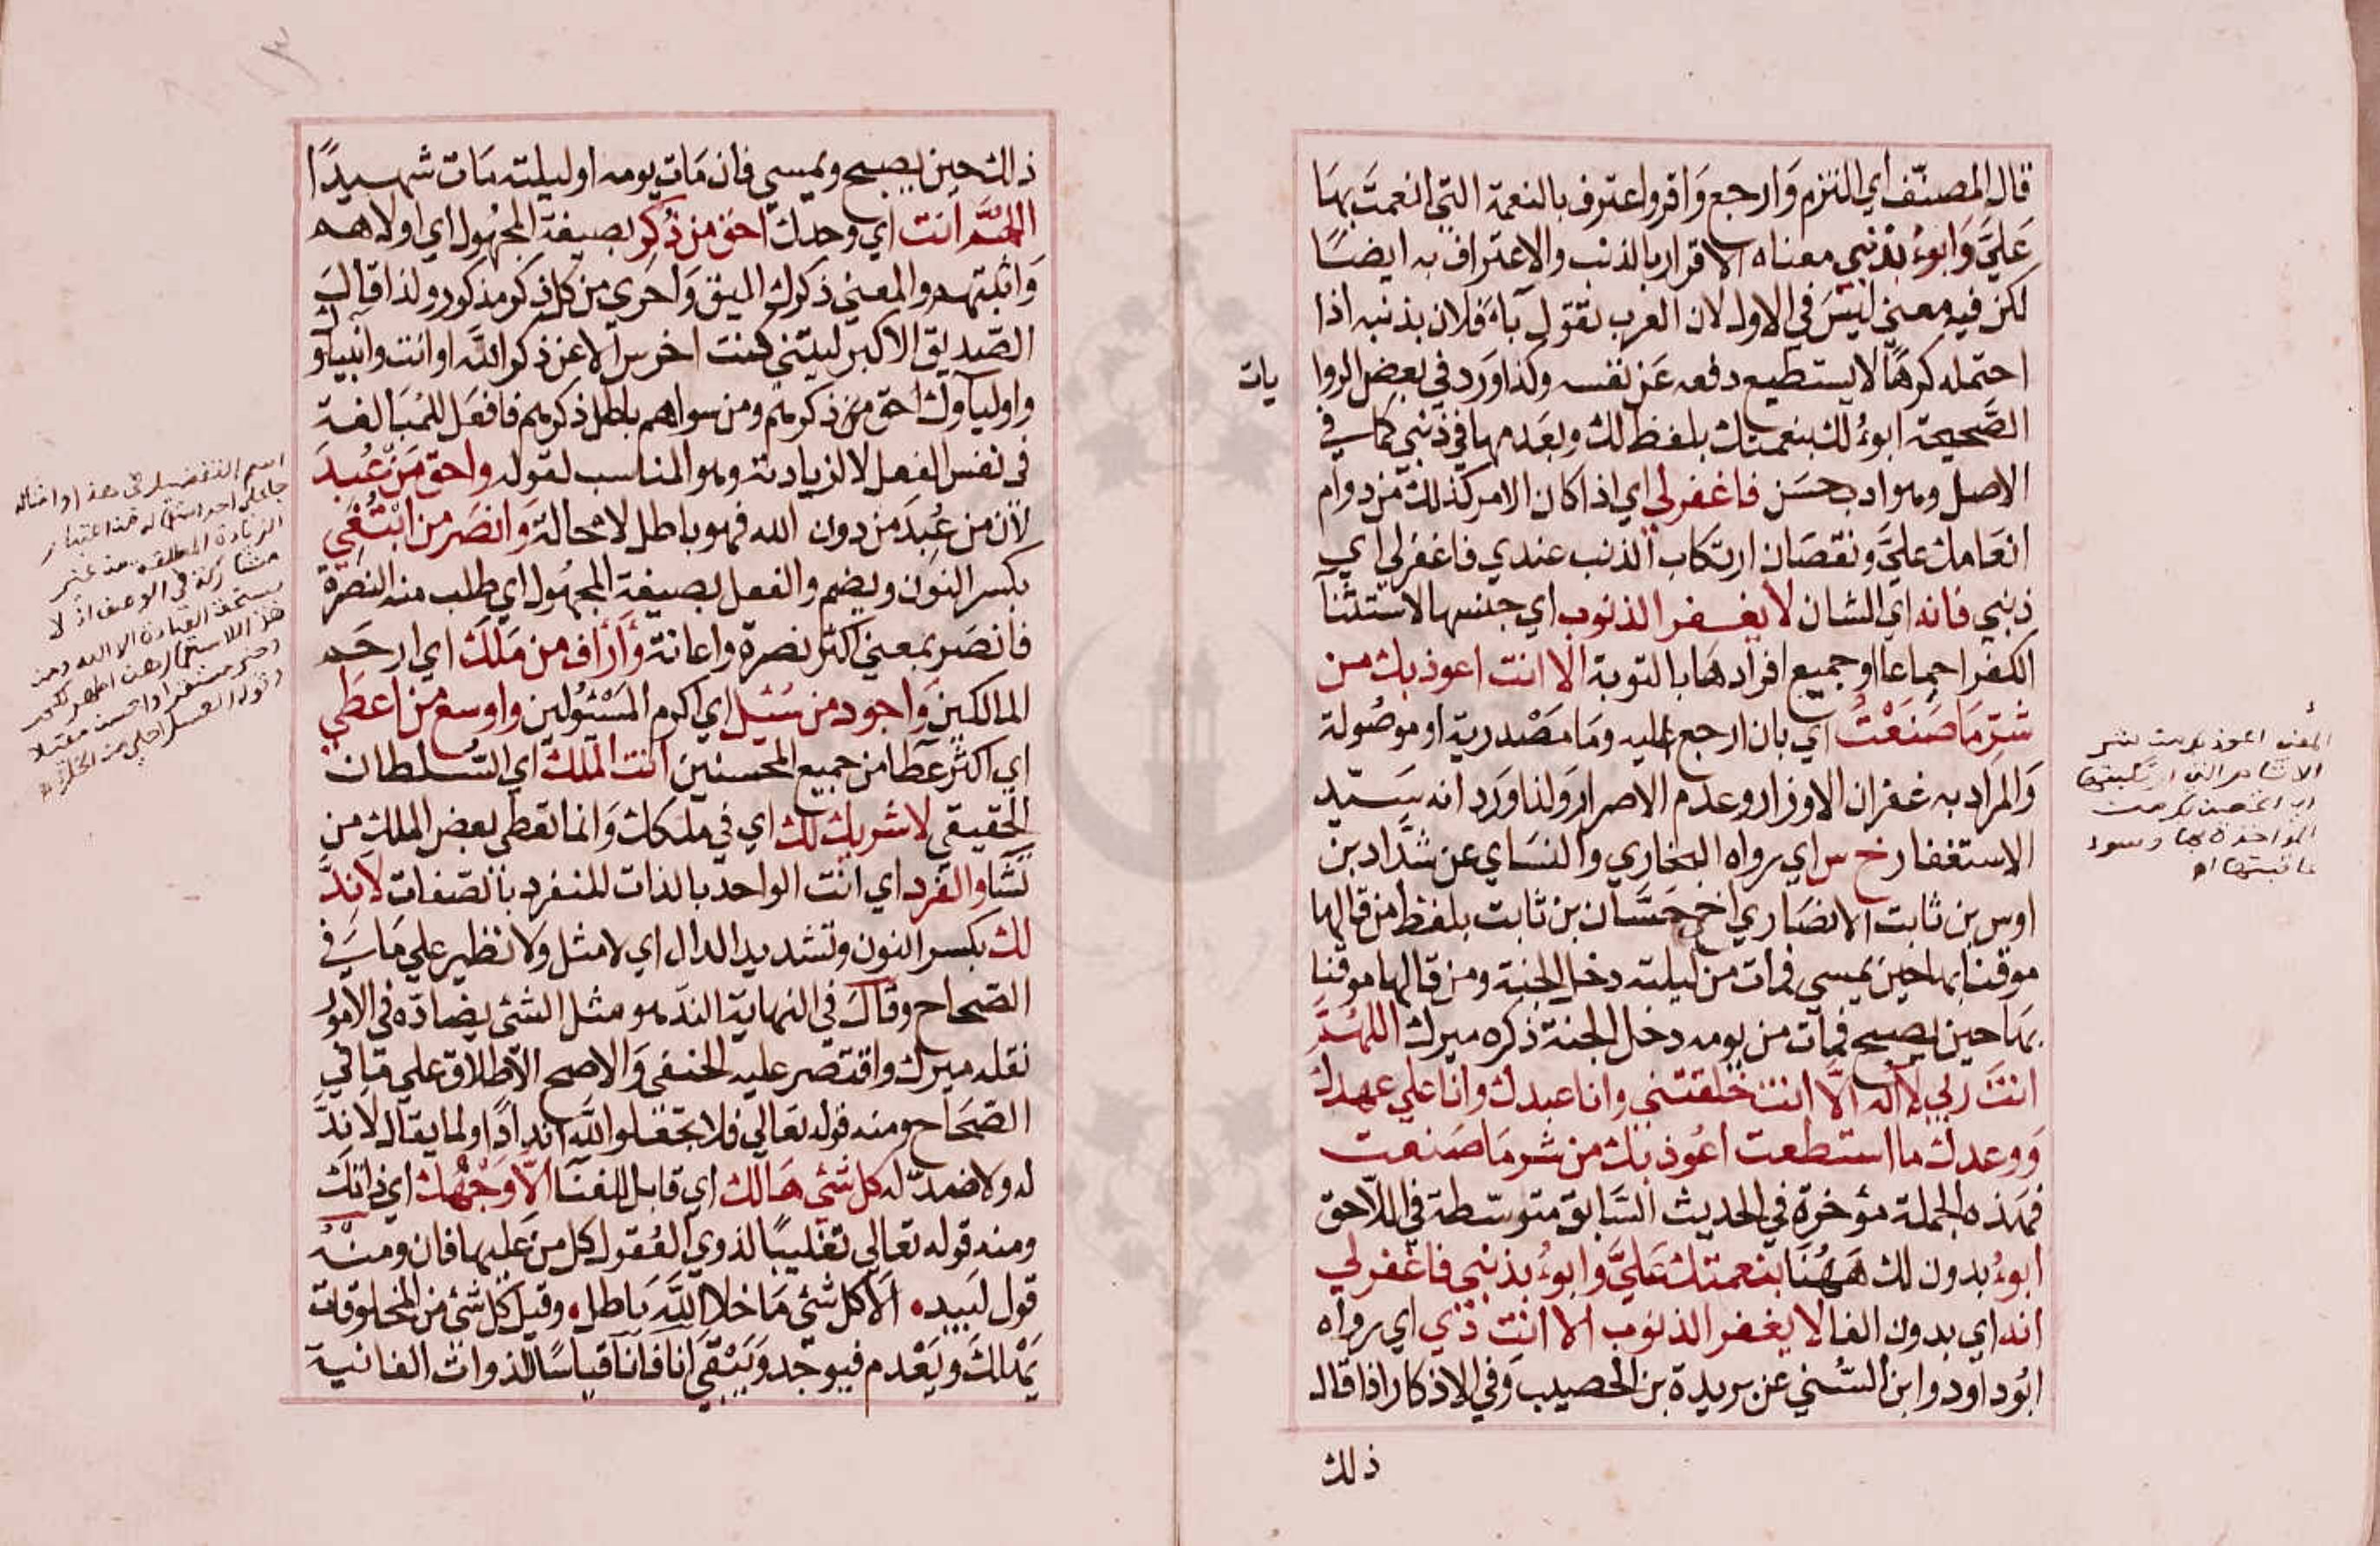 قال المصنّف اي التزم وارجع واقر واعترف بالنعمة التي انعمت بها
عليَّ وابوءُ بذنبي معناه الاقرار بالذنب والاعتراف به ايضًا
لكن فيه معني ليس في الاول لان العرب تقول باءَ فلان بذنبه اذا
احتمله كرهًا لا يستطيع دفعه عن نفسه وكذا ورد في بعض الروا
يات
الصّحيحة ابوءُ لك بنعمتك بلفظ لك وبعدمها في ذنبي كما في
الاصل وهو ادب حسن فاغفرلي اي اذا كان الامر كذلك من دوام
انعامك عليَّ ونقصان ارتكاب الذنب عندي فاغفرلي اي
ذنبي فانه اي الشان لا يغفر الذنوب اي جنسها لاستثنآ
الكفر اجماعا او جميع افرادها بالتوبة الا انت اعوذ بك من
شرّ ما صنعتُ اي بان ارجع اليه وما مصْدرية او موصُولة
والمراد به غفران الاوزار وعدم الاصرار ولذا ورد انه سيّد
الاستغفار خ س اي رواه البخاري والنساي عن شدّاد بن
اوس بن ثابت الانصاري اخي حسَّان بن ثابت بلفظ من قالها
موقنا بها حين يمسي فمات من ليلته دخل الجنة ومن قالها موقنا
بها حين يصبح فمات من يومه دخل الجنة ذكره ميرك اللهمّ
انت ربي لا اله الّا انت خلقتني وانا عبدك وانا علي عهدك
ووعدك ما استطعت اعوذ بك من شر ما صنعت
فهذه الجملة مؤخرة في الحديث السّابق متوسّطة في اللّاحق
ابوءُ بدون لك هَهُنَا بنعمتك عليَّ وابوءُ بذنبي فاغفرلي
انه اي بدون الفا لا يغفر الذنوب الا انت د ي اي رواه
ابُوداود وابن السُّني عن بريدة بن الحصيب وفي الاذكار اذا قال
ذلك
المعني اعوذ بك من شر
الآثام التي ارتكبتها
اي اعتصم بك من
المؤاخذة بها وسوء
عاقبتها اه
ذلك حين يصبح ويمسي فان مات يومه او ليلته مات شهيدًا
اللهُمَّ انت اي وحدك احق من ذُكِر بصيغة المجهُول اي اولاهم
واثبتهم والمعني ذكرك اليق واحري من كل ذكر مذكور ولذا قال
الصّديق الاكبر ليتني كنت اخرس الا عن ذكر اللّه او انت وانبياؤ
واولياؤك احق من ذكرهم ومن سواهم باطل ذكرهم فافعل للمُبالغة
في نفس الفعل لا لزيادته وهو المناسب لقوله واحق من عُبِدَ
لان من عُبِدَ من دون الله فهو باطل لا محالة وانصَر من ابْتُغِي
بكسر النون ويضم والفعل بصيغة المجهُول اي طلب منه النصرة
فانصَر بمعني اكثر نصرة واعانة وَأَرْأَف من مَلَكَ اي ارحم
المالكين واجود من سُئِل اي اكرم المسْئُولين واوسع من اعطي
اي اكثر عطآ من جميع المحسنين انت الملك اي السُّلطان
الحقيقي لا شريك لك اي في ملكك وانما تعطي بعض الملك من
تشآ والفرد اي انت الواحد بالذات المنفرد بالصّفات لا نِدَّ
لك بكسر النون وتشديد الدال اي لا مثل ولا نظير علي ما في
الصّحاح وقال في النهاية النّد هو مثل الشئ يضادّه في الامور
نقله ميرك واقتصر عليه الحنفي والاصح الاطلاق علي ما في
الصّحاح ومنه قوله تعالي فلا تجعلوا للّه اندادًا ولما يقال لا ندَّ
له ولا ضدّ له كل شئ هالك اي قابل للفنآ الّا وَجْهُك اي ذاتك
ومنه قوله تعالي تغليبًا لذوي العُقول كل من عليها فان ومنه
قول لبيد الا كل شئ ما خلا اللّه باطل وقيل كل شئ من المخلوقات
يهْلك ويَعْدم فيوجد ويبقي آنا فآنا قياسًا للذوات الفانية
اسم التفضيل في هذا وامثاله
الزيادة المطلقة من غير
مشاركة في الاصل اذ لا
يستحق العبادة الا الله ومن